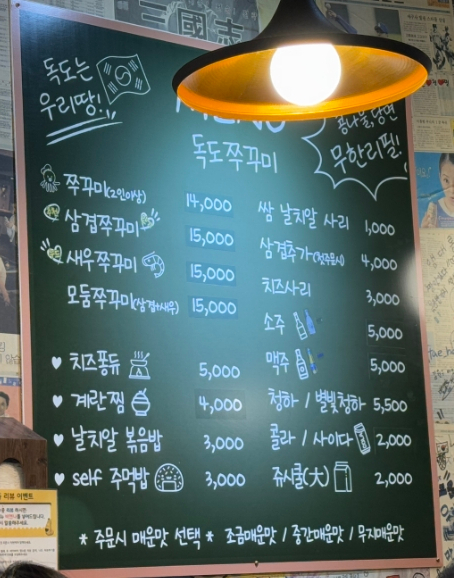 三國志
독도는
우리땅!
MENU
독도쭈꾸미
콩나물,당면
무한리필!
쭈꾸미(2인이상) 14,000
삼겹쭈꾸미 15,000
새우쭈꾸미 15,000
모둠쭈꾸미(삼겹+새우) 15,000
치즈퐁듀 5,000
계란찜 4,000
날치알 볶음밥 3,000
self 주먹밥 3,000
쌈 날치알 사리 1,000
삼겹추가(첫주문시) 4,000
치즈사리 3,000
소주 5,000
맥주 5,000
청하 / 별빛청하 5,500
콜라 / 사이다 2,000
쥬시쿨(大) 2,000
* 주문시 매운맛 선택 * 조금매운맛 / 중간매운맛 / 무지매운맛
리뷰 이벤트